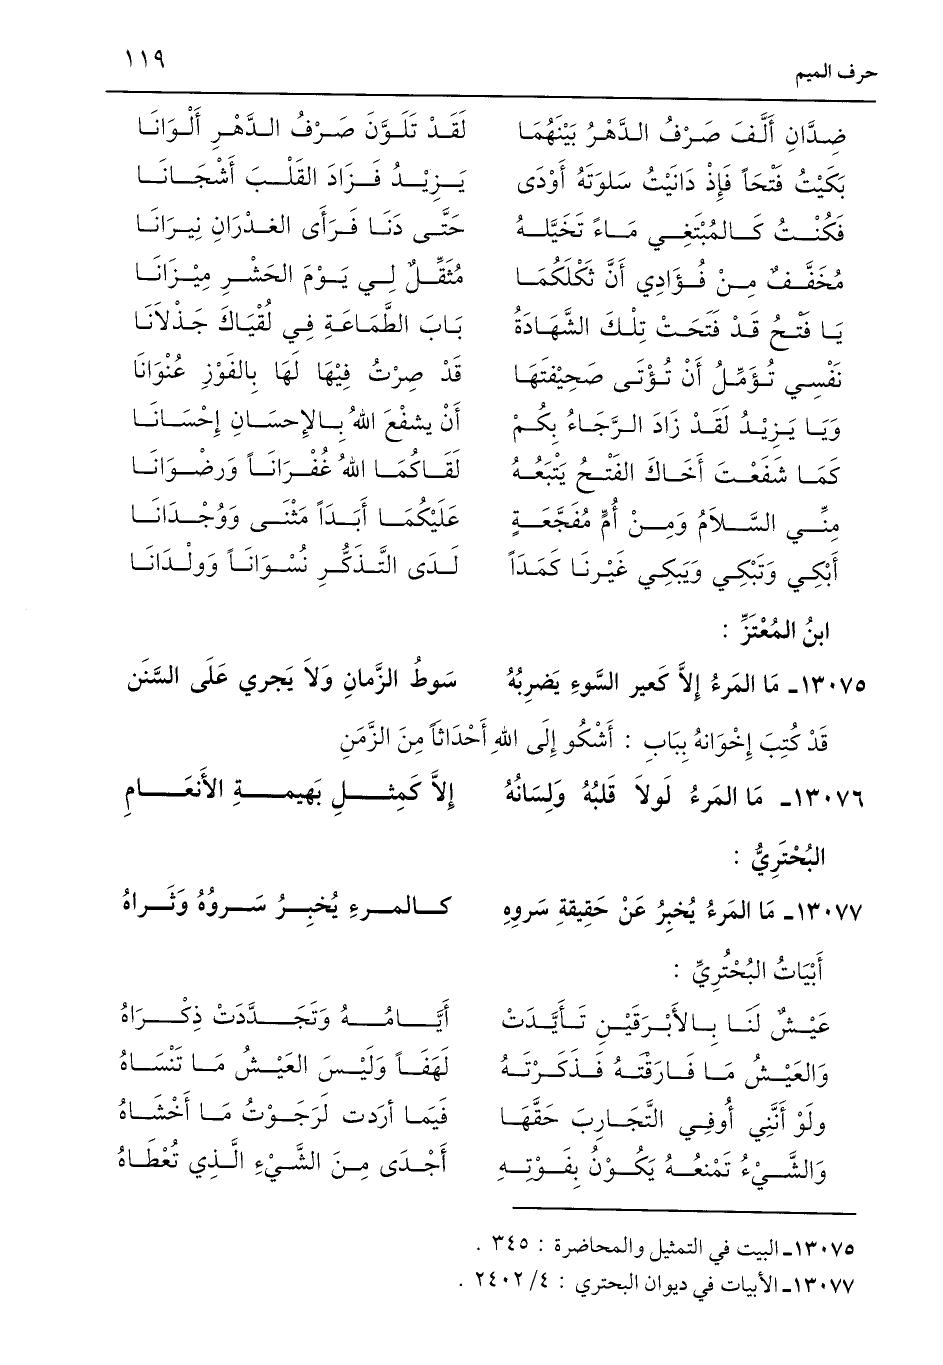 حرف الميم ١١٩
ضِدَّانِ أَلَّفَ صَرْفُ الدَّهْرُ بَيْنَهُمَا لَقَدْ تَلَوَّنَ صَرْفُ الدَّهْرِ أَلْوَانَا
بَكَيْتُ فَتْحَاً فَإِذْ دَانَيْتُ سَلْوَتَهُ أَوْدَى يَزِيْدُ فَزَادَ القَلْبَ أَشْجَانَا
فَكُنْتُ كَالمُبْتَغِي مَاءً تَخَيَّلَهُ حَتَّى دَنَا فَرَأَى الغُدْرَانَ نِيرَانَا
مُخَفَّفٌ مِنْ فُؤَادِي أَنَّ ثُكْلَكُمَا مُثَقِّلٌ لِي يَوْمَ الحَشْرِ مِيْزَانَا
يَا فَتْحُ قَدْ فَتَحَتْ تِلْكَ الشَّهَادَةُ بَابَ الطَّمَاعَةِ فِي لُقْيَاكَ جَذْلَانَا
نَفْسِي تُؤَمِّلُ أَنْ تُؤْتَى صَحِيْفَتَهَا قَدْ صِرْتُ فِيْهَا لَهَا بِالفَوْزِ عُنْوَانَا
وَيَا يَزِيْدُ لَقَدْ زَادَ الرَّجَاءُ بِكُمْ أَنْ يشْفَعَ اللهُ بِالإِحْسَانِ إِحْسَانَا
كَمَا شَفَعْتَ أَخَاكَ الفَتْحَ يَتْبَعُهُ لَقَاكُمَا اللهُ غُفْرَانَاً وَرِضْوَانَا
مِنِّي السَّلَامُ وَمِنْ أُمٍّ مُفَجَّعَةٍ عَلَيْكُمَا أَبَدَاً مَثْنَى وَوُحْدَانَا
أَبْكِي وَتَبْكِي وَيَبكِي غَيْرنَا كَمَدَاً لَدَى التَّذَكُّرِ نُسْوَانَاً وَولْدَانَا
ابنُ المُعْتَزِّ :
١٣٠٧٥ـ مَا المَرءُ إِلاَّ كَعيرِ السَّوءِ يَضرِبُهُ سَوطُ الزَّمانِ وَلاَ يَجرِي عَلَى السَّنَنِ
قَدْ كُتِبَ إِخْوَانهُ بِبَابِ : أَشْكُو إِلَى اللهِ أَحْدَاثَاً مِنَ الزَّمَنِ
١٣٠٧٦ـ مَا المَرءُ لَولاَ قَلبُهُ وَلِسَانُهُ إِلاَّ كَمِثلِ بَهِيمةِ الأَنعَامِ
البُحْتَرِيُّ :
١٣٠٧٧ـ مَا المَرءُ يُخبِرُ عَنْ حَقِيقَةِ سَروِهِ كالمرءِ يُخبِرُ سَروُهُ وَثَراهُ
أَبْيَاتُ البُحْتُرِيِّ :
عَيْشٌ لَنَا بِالأَبْرَقَيْنِ تَأَبَّدَتْ أَيَّامُهُ وَتَجَدَّدَتْ ذِكْرَاهُ
وَالعَيْشُ مَا فَارَقْتَهُ فَذَكَرْتَهُ لَهَفَاً وَلَيْسَ العَيْشُ مَا تَنْسَاهُ
وَلَوْ أَنَّنِي أُوفِي التَّجَارِبَ حَقَّهَا فَيَمَا أَرَدت لَرَجَوْتُ مَا أَخْشَاهُ
وَالشَّيْءُ تَمْنَعُهُ يَكُوْنُ بِفَوْتِهِ أَجْدَى مِنَ الشَّيْءِ الَّذِي تُعْطَاهُ
١٣٠٧٥ـ البيت في التمثيل والمحاضرة : ٣٤٥ .
١٣٠٧٧ـ الأبيات في ديوان البحتري : ٤/ ٢٤٠٢ .